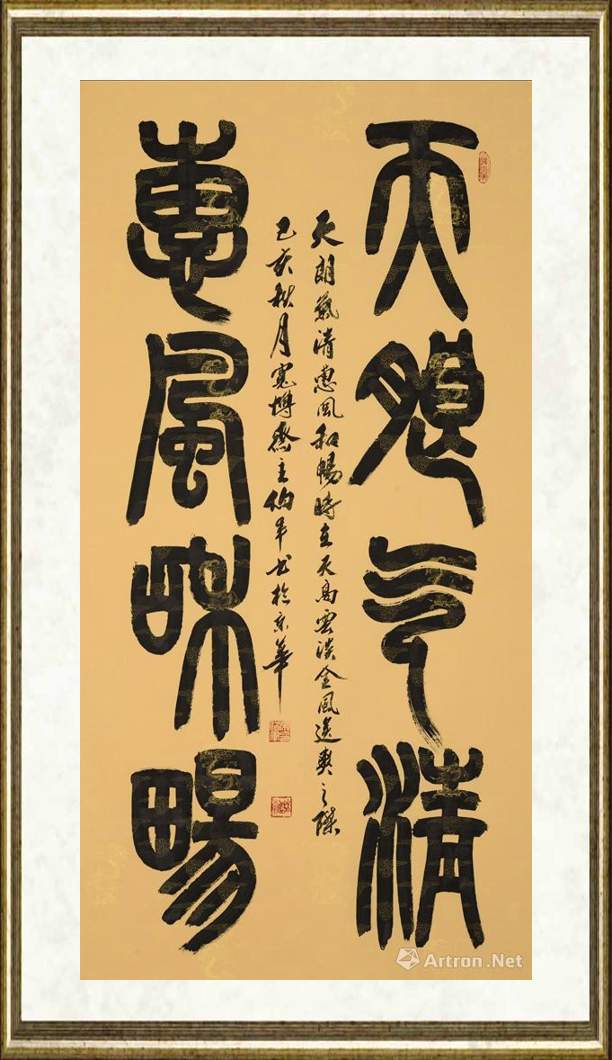 天朗气清
惠風咊暢
天朗氣清惠風和暢時在天高雲淡金風送爽之際
己亥秋月寬博齋主伯平书於京華
Artron.Net